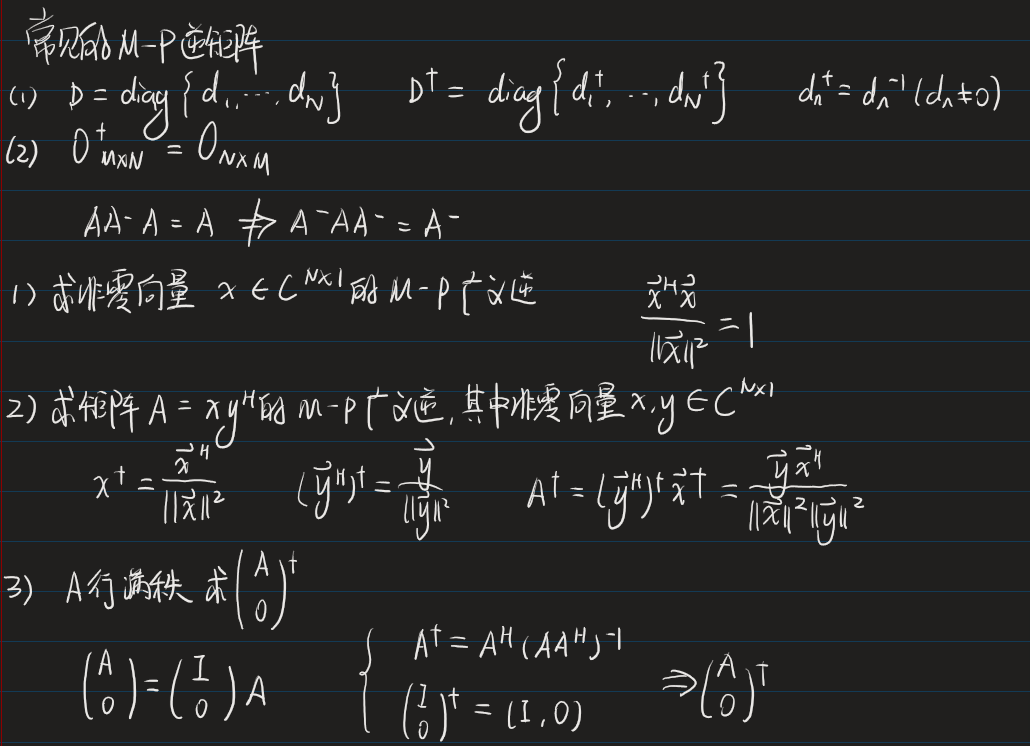 常见的M-P逆矩阵
(1) D = diag{d₁,…,d_N} D† = diag{d₁†,…,d_N†} dₙ† = dₙ⁻¹ (dₙ≠0)
(2) O†_{M×N} = O_{N×M}
AA⁻A = A ⇏ A⁻AA⁻ = A⁻
1) 求非零向量 x ∈ C^{N×1} 的 M-P广义逆 \frac{\vec{x}^H\vec{x}}{||\vec{x}||²} = 1
2) 求矩阵 A = xy^H 的 M-P广义逆,其中非零向量 x,y ∈ C^{N×1}
x† = \frac{\vec{x}^H}{||\vec{x}||²} (\vec{y}^H)† = \frac{\vec{y}}{||\vec{y}||²} A† = (\vec{y}^H)†\vec{x}† = \frac{\vec{y}\vec{x}^H}{||\vec{x}||²||\vec{y}||²}
3) A行满秩 求 \binom{A}{0}†
\binom{A}{0} = \binom{I}{0} A { A† = A^H(AA^H)⁻¹
\binom{I}{0}† = (I,0) ⇒ \binom{A}{0}†